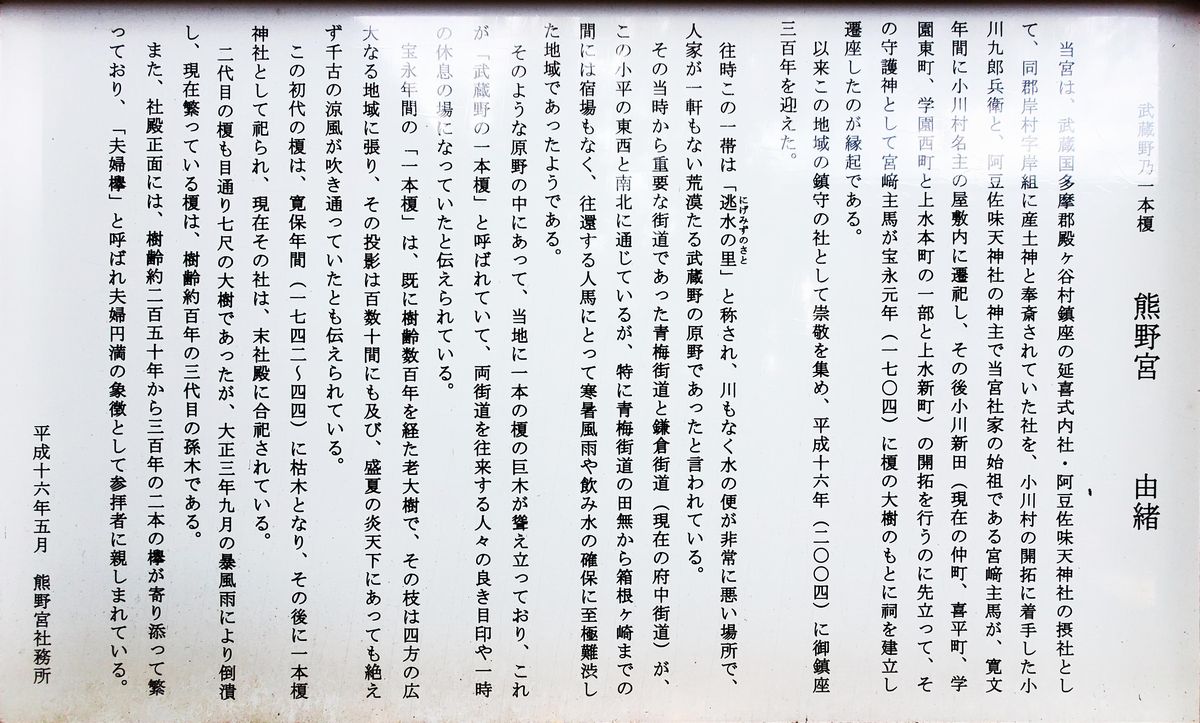 武蔵野乃一本榎　熊野宮　由緒
当宮は、武蔵国多摩郡殿ヶ谷村鎮座の延喜式内社・阿豆佐味天神社の摂社とし
て、同郡岸村字岸組に産土神と奉斎されていた社を、小川村の開拓に着手した小
川九郎兵衛と、阿豆佐味天神社の神主で当宮社家の始祖である宮﨑主馬が、寛文
年間に小川村名主の屋敷内に遷祀し、その後小川新田（現在の仲町、喜平町、学
園東町、学園西町と上水本町の一部と上水新町）の開拓を行うのに先立って、そ
の守護神として宮﨑主馬が宝永元年（一七〇四）に榎の大樹のもとに祠を建立し
遷座したのが縁起である。
以来この地域の鎮守の社として崇敬を集め、平成十六年（二〇〇四）に御鎮座
三百年を迎えた。
往時この一帯は「逃水の里」と称され、川もなく水の便が非常に悪い場所で、
にげみずのさと
人家が一軒もない荒漠たる武蔵野の原野であったと言われている。
その当時から重要な街道であった青梅街道と鎌倉街道（現在の府中街道）が、
この小平の東西と南北に通じているが、特に青梅街道の田無から箱根ヶ崎までの
間には宿場もなく、往還する人馬にとって寒暑風雨や飲み水の確保に至極難渋し
た地域であったようである。
そのような原野の中にあって、当地に一本の榎の巨木が聳え立っており、これ
が「武蔵野の一本榎」と呼ばれていて、両街道を往来する人々の良き目印や一時
の休息の場になっていたと伝えられている。
宝永年間の「一本榎」は、既に樹齢数百年を経た老大樹で、その枝は四方の広
大なる地域に張り、その投影は百数十間にも及び、盛夏の炎天下にあっても絶え
ず千古の涼風が吹き通っていたとも伝えられている。
この初代の榎は、寛保年間（一七四二～四四）に枯木となり、その後に一本榎
神社として祀られ、現在その社は、末社殿に合祀されている。
二代目の榎も目通り七尺の大樹であったが、大正三年九月の暴風雨により倒潰
し、現在繁っている榎は、樹齢約百年の三代目の孫木である。
また、社殿正面には、樹齢約二百五十年から三百年の二本の欅が寄り添って繁
っており、「夫婦欅」と呼ばれ夫婦円満の象徴として参拝者に親しまれている。
平成十六年五月　熊野宮社務所